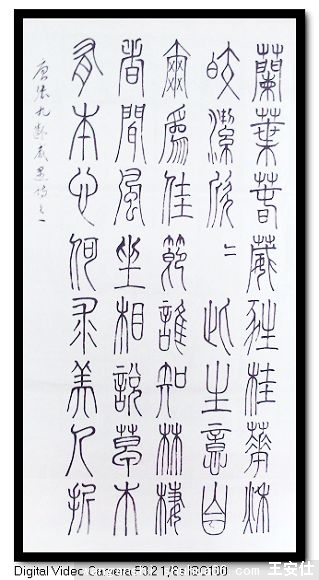 蘭葉萅葳甤桂華秌
皎潔欣二此生意自
爾爲佳節誰知林棲
者聞風坐相說草木
有本心何求美人折
唐張九齡感遇詩之一
Digital Video Camera F3.2 1/8 ISO100
王安仕